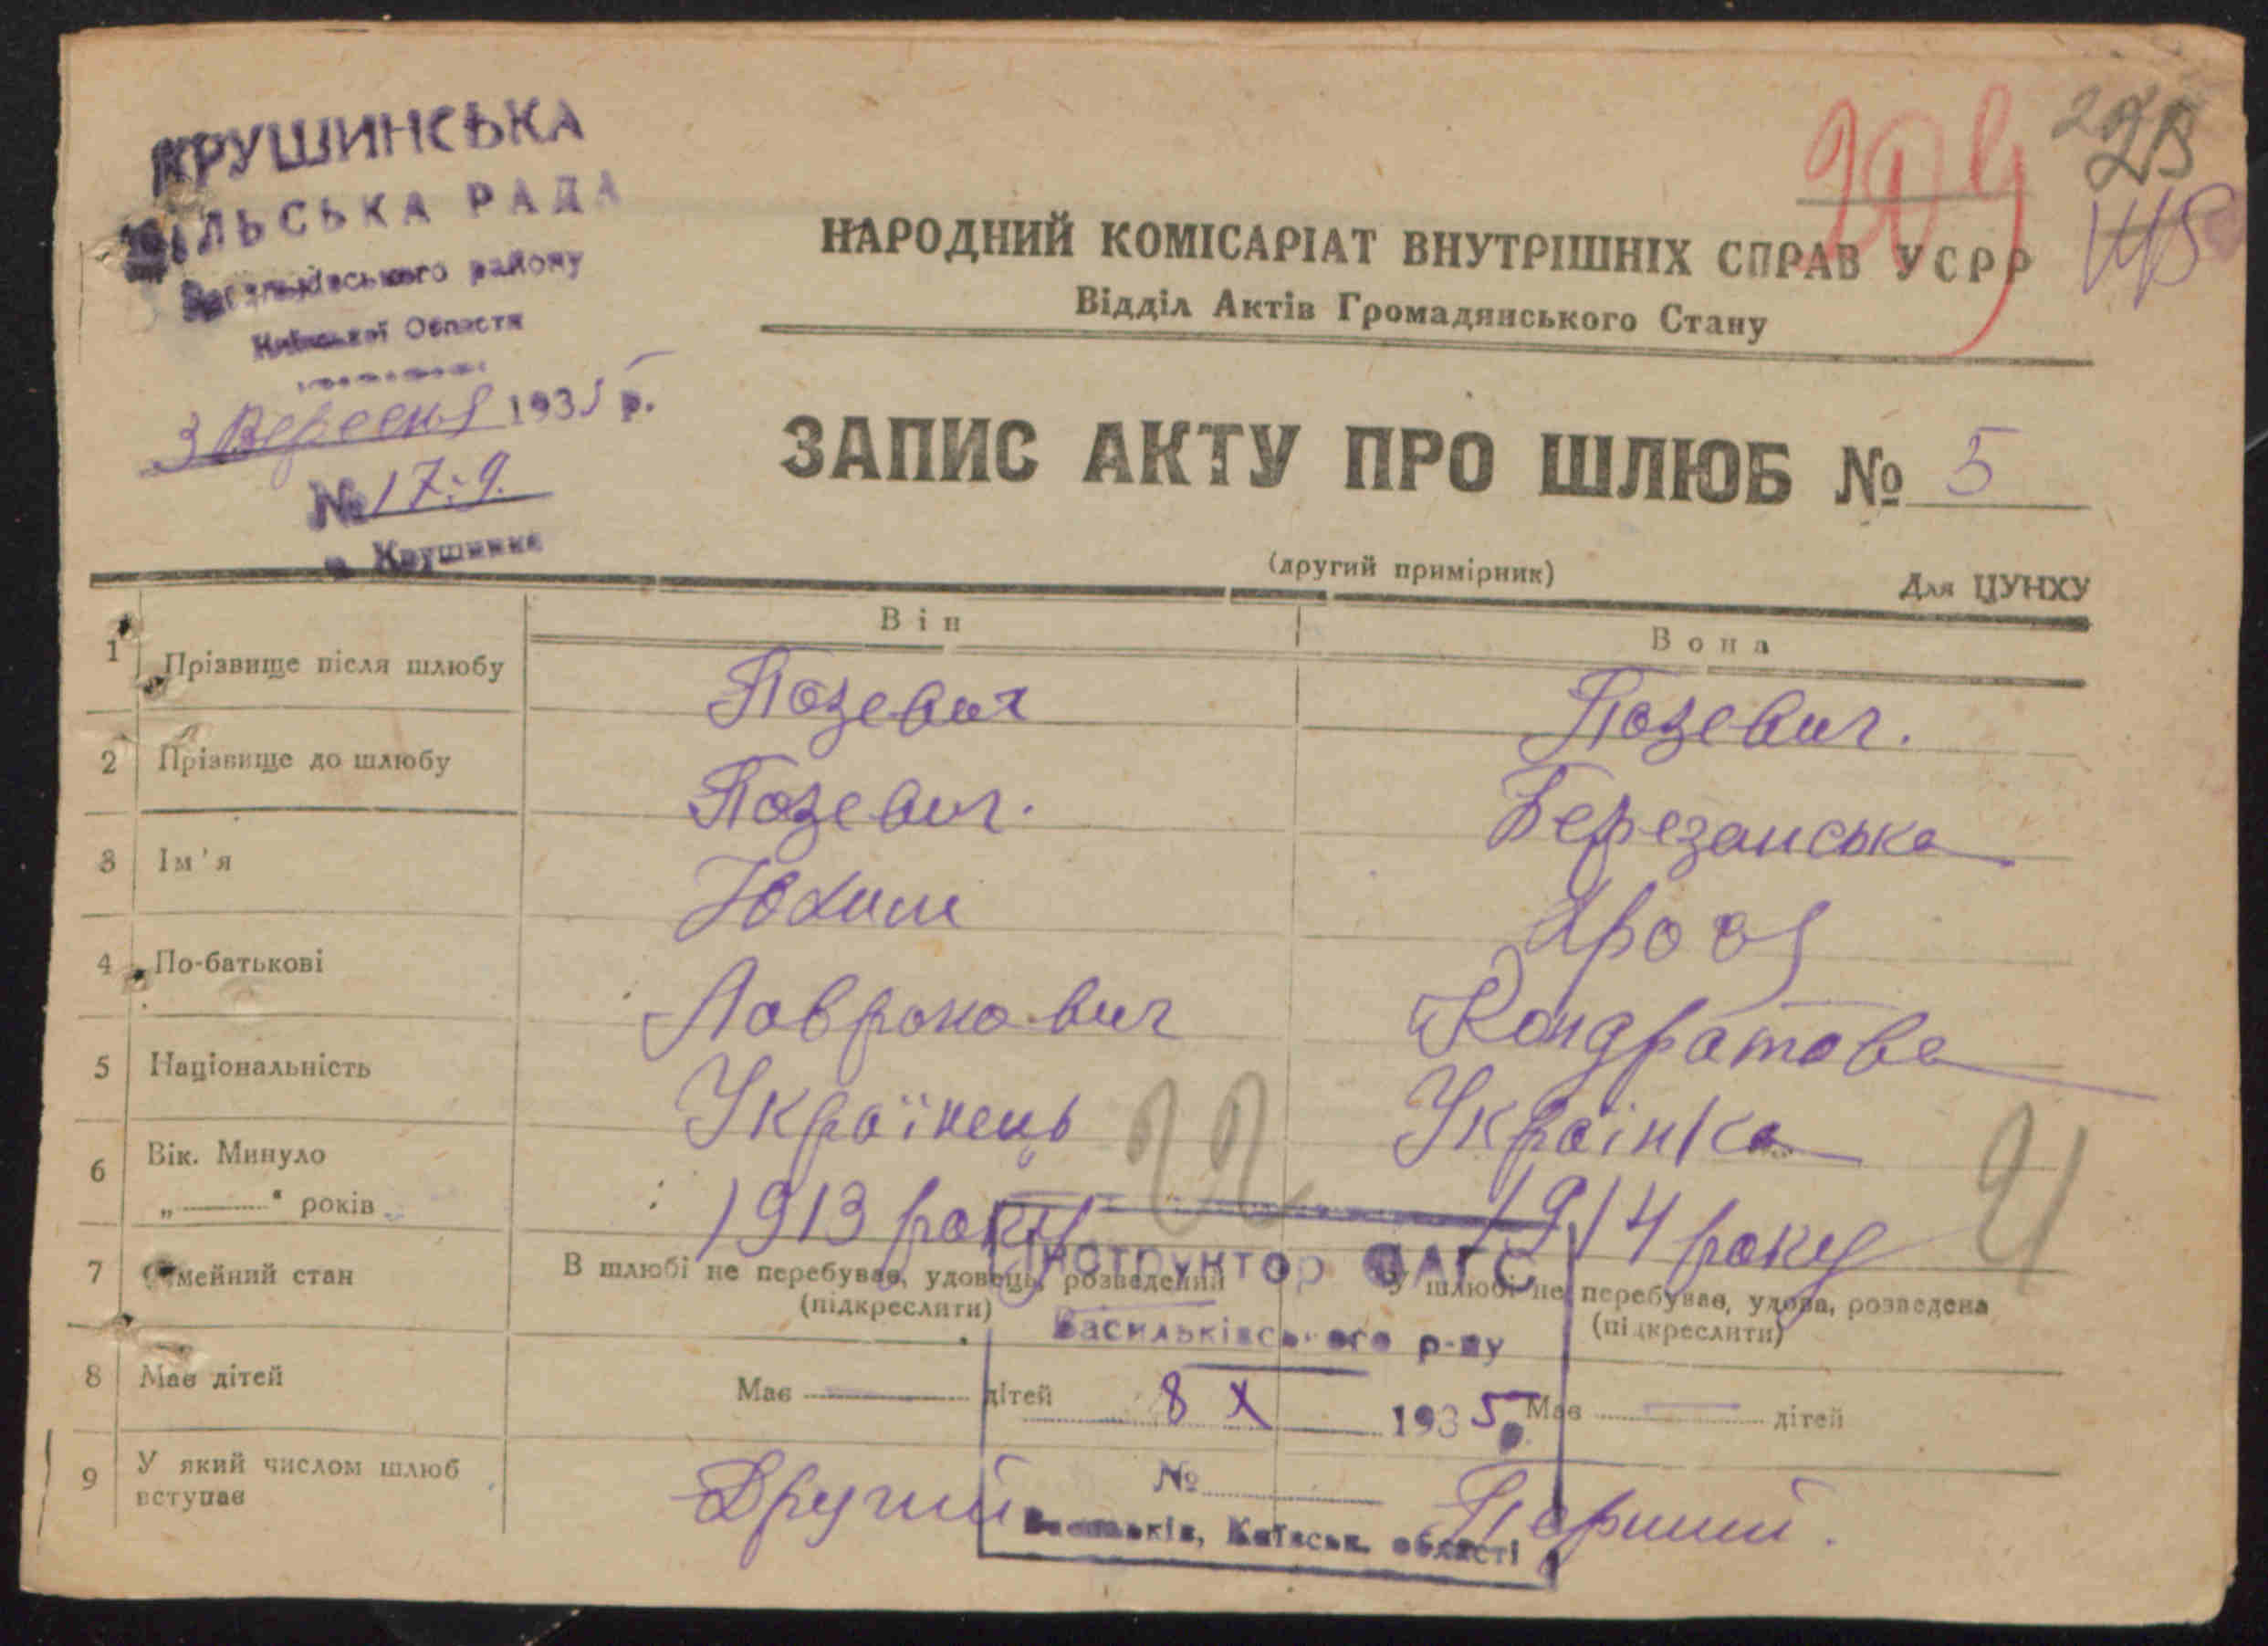 КРУШИНСЬКА
СІЛЬСЬКА РАДА
Васильківського району
Київської Области
3 Вересня 1935 р.
№ 17-9.
с. Крушинка
209
НАРОДНИЙ КОМІСАРІАТ ВНУТРІШНІХ СПРАВ УСРР
Відділ Актів Громадянського Стану
ЗАПИС АКТУ ПРО ШЛЮБ № 5
(другий примірник)
Для ЦУНХУ
Він
Вона
1 Прізвище після шлюбу Позевич Позевич.
2 Прізвище до шлюбу Позевич. Березанська
3 Ім'я Юхим
4 По-батькові Лавронович Кондратова
5 Національність Українець Українка
6 Вік. Минуло „———“ років 1913 року 22 1914 року 21
7 Сімейний стан В шлюбі не перебував, удовець, розведений (підкреслити) У шлюбі не перебуває, удова, розведена (підкреслити)
8 Має дітей Має — дітей Має — дітей
9 У який числом шлюб вступає Другий Перший.
Інструктор ЗАГС
Васильківського р-ну
8 X 1935 р.
№
Васильків, Київськ. області